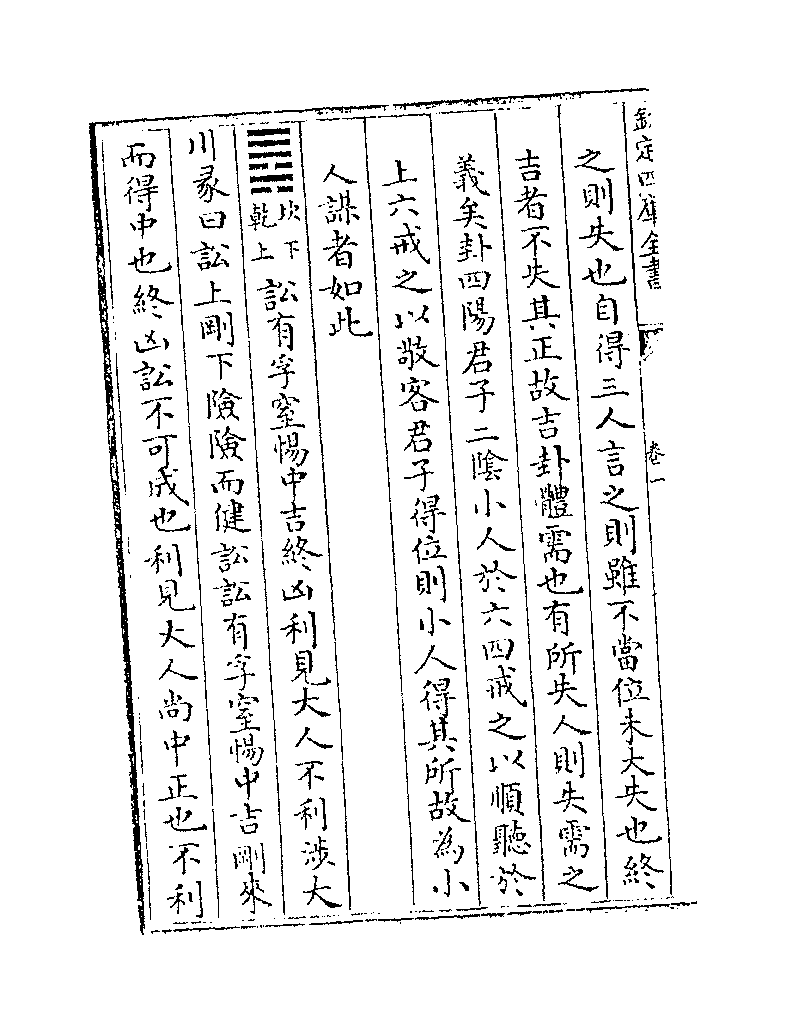 欽定四庫全書
卷一
之則失也自得三人言之則雖不當位未大失也終
吉者不失其正故吉卦體需也有所失人則失需之
義矣卦四陽君子二陰小人於六四戒之以順聽於
上六戒之以敬客君子得位則小人得其所故為小
人謀者如此
坎下
乾上
訟有孚窒惕中吉終凶利見大人不利涉大
川彖曰訟上剛下險險而健訟訟有孚窒惕中吉剛來
而得中也終凶訟不可成也利見大人尚中正也不利